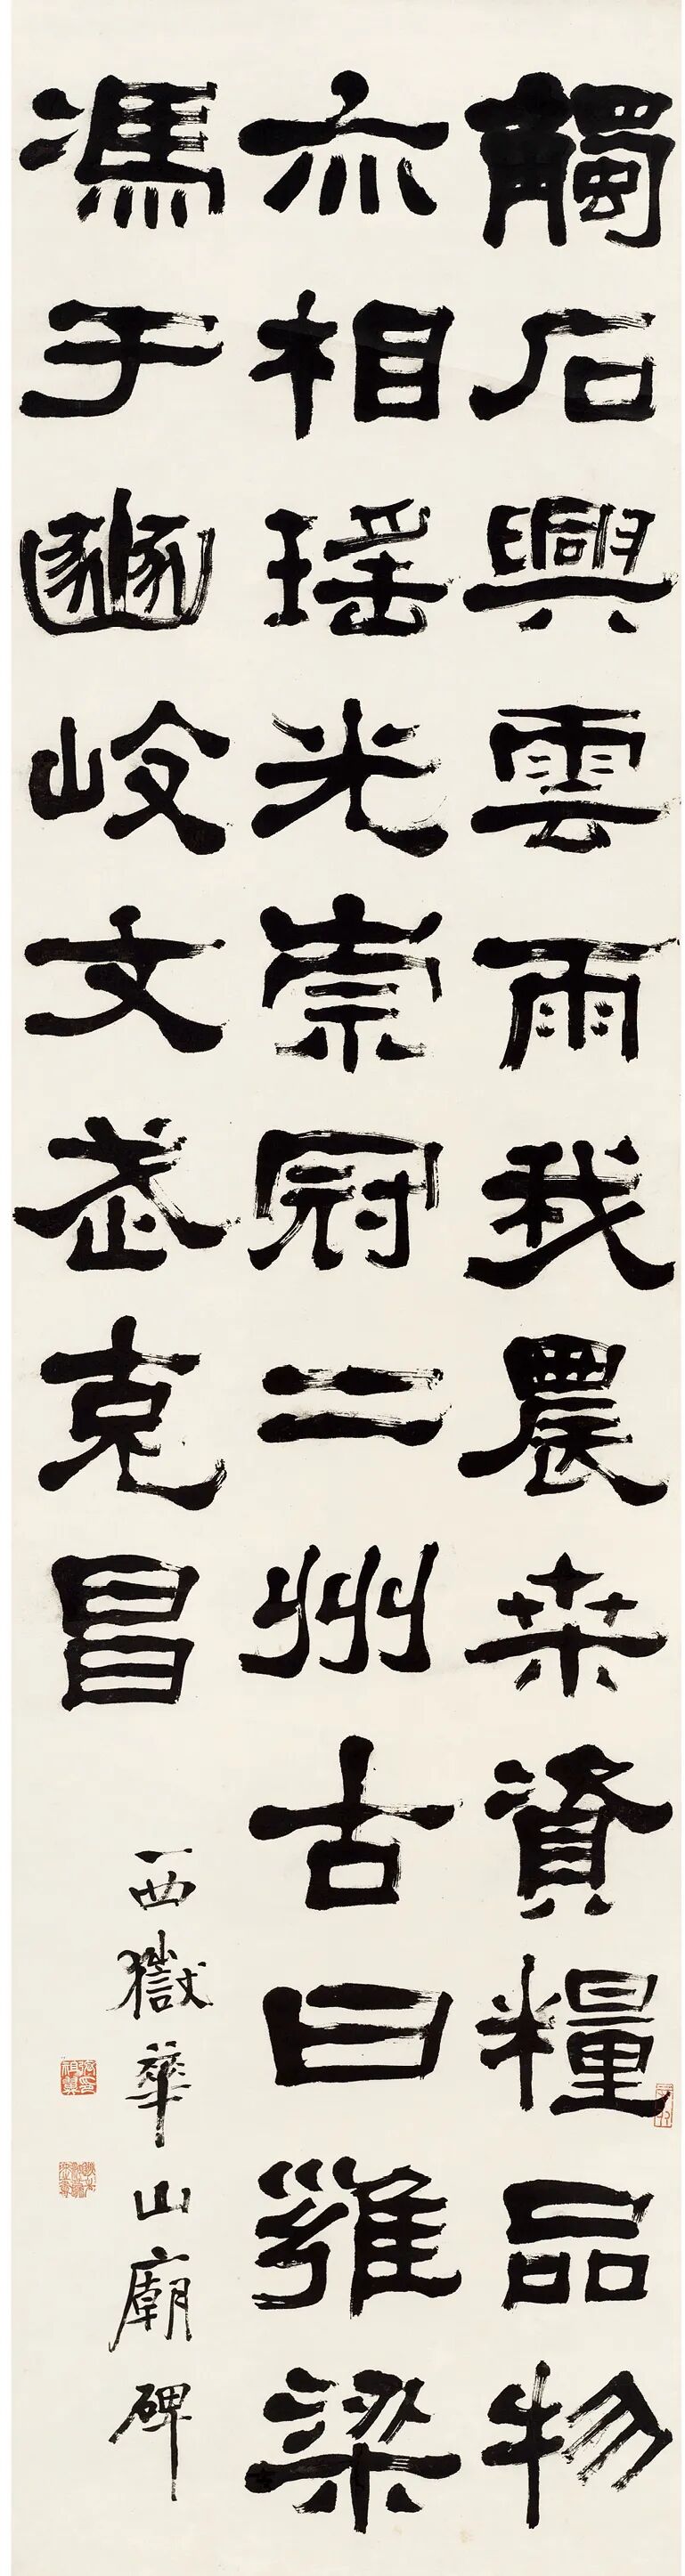 觸石興雲雨我農桒資糧品物
亦相瑶光崇冠二州古曰雍梁
馮于豳岐文武克昌
西嶽華山廟碑
張祖翼印